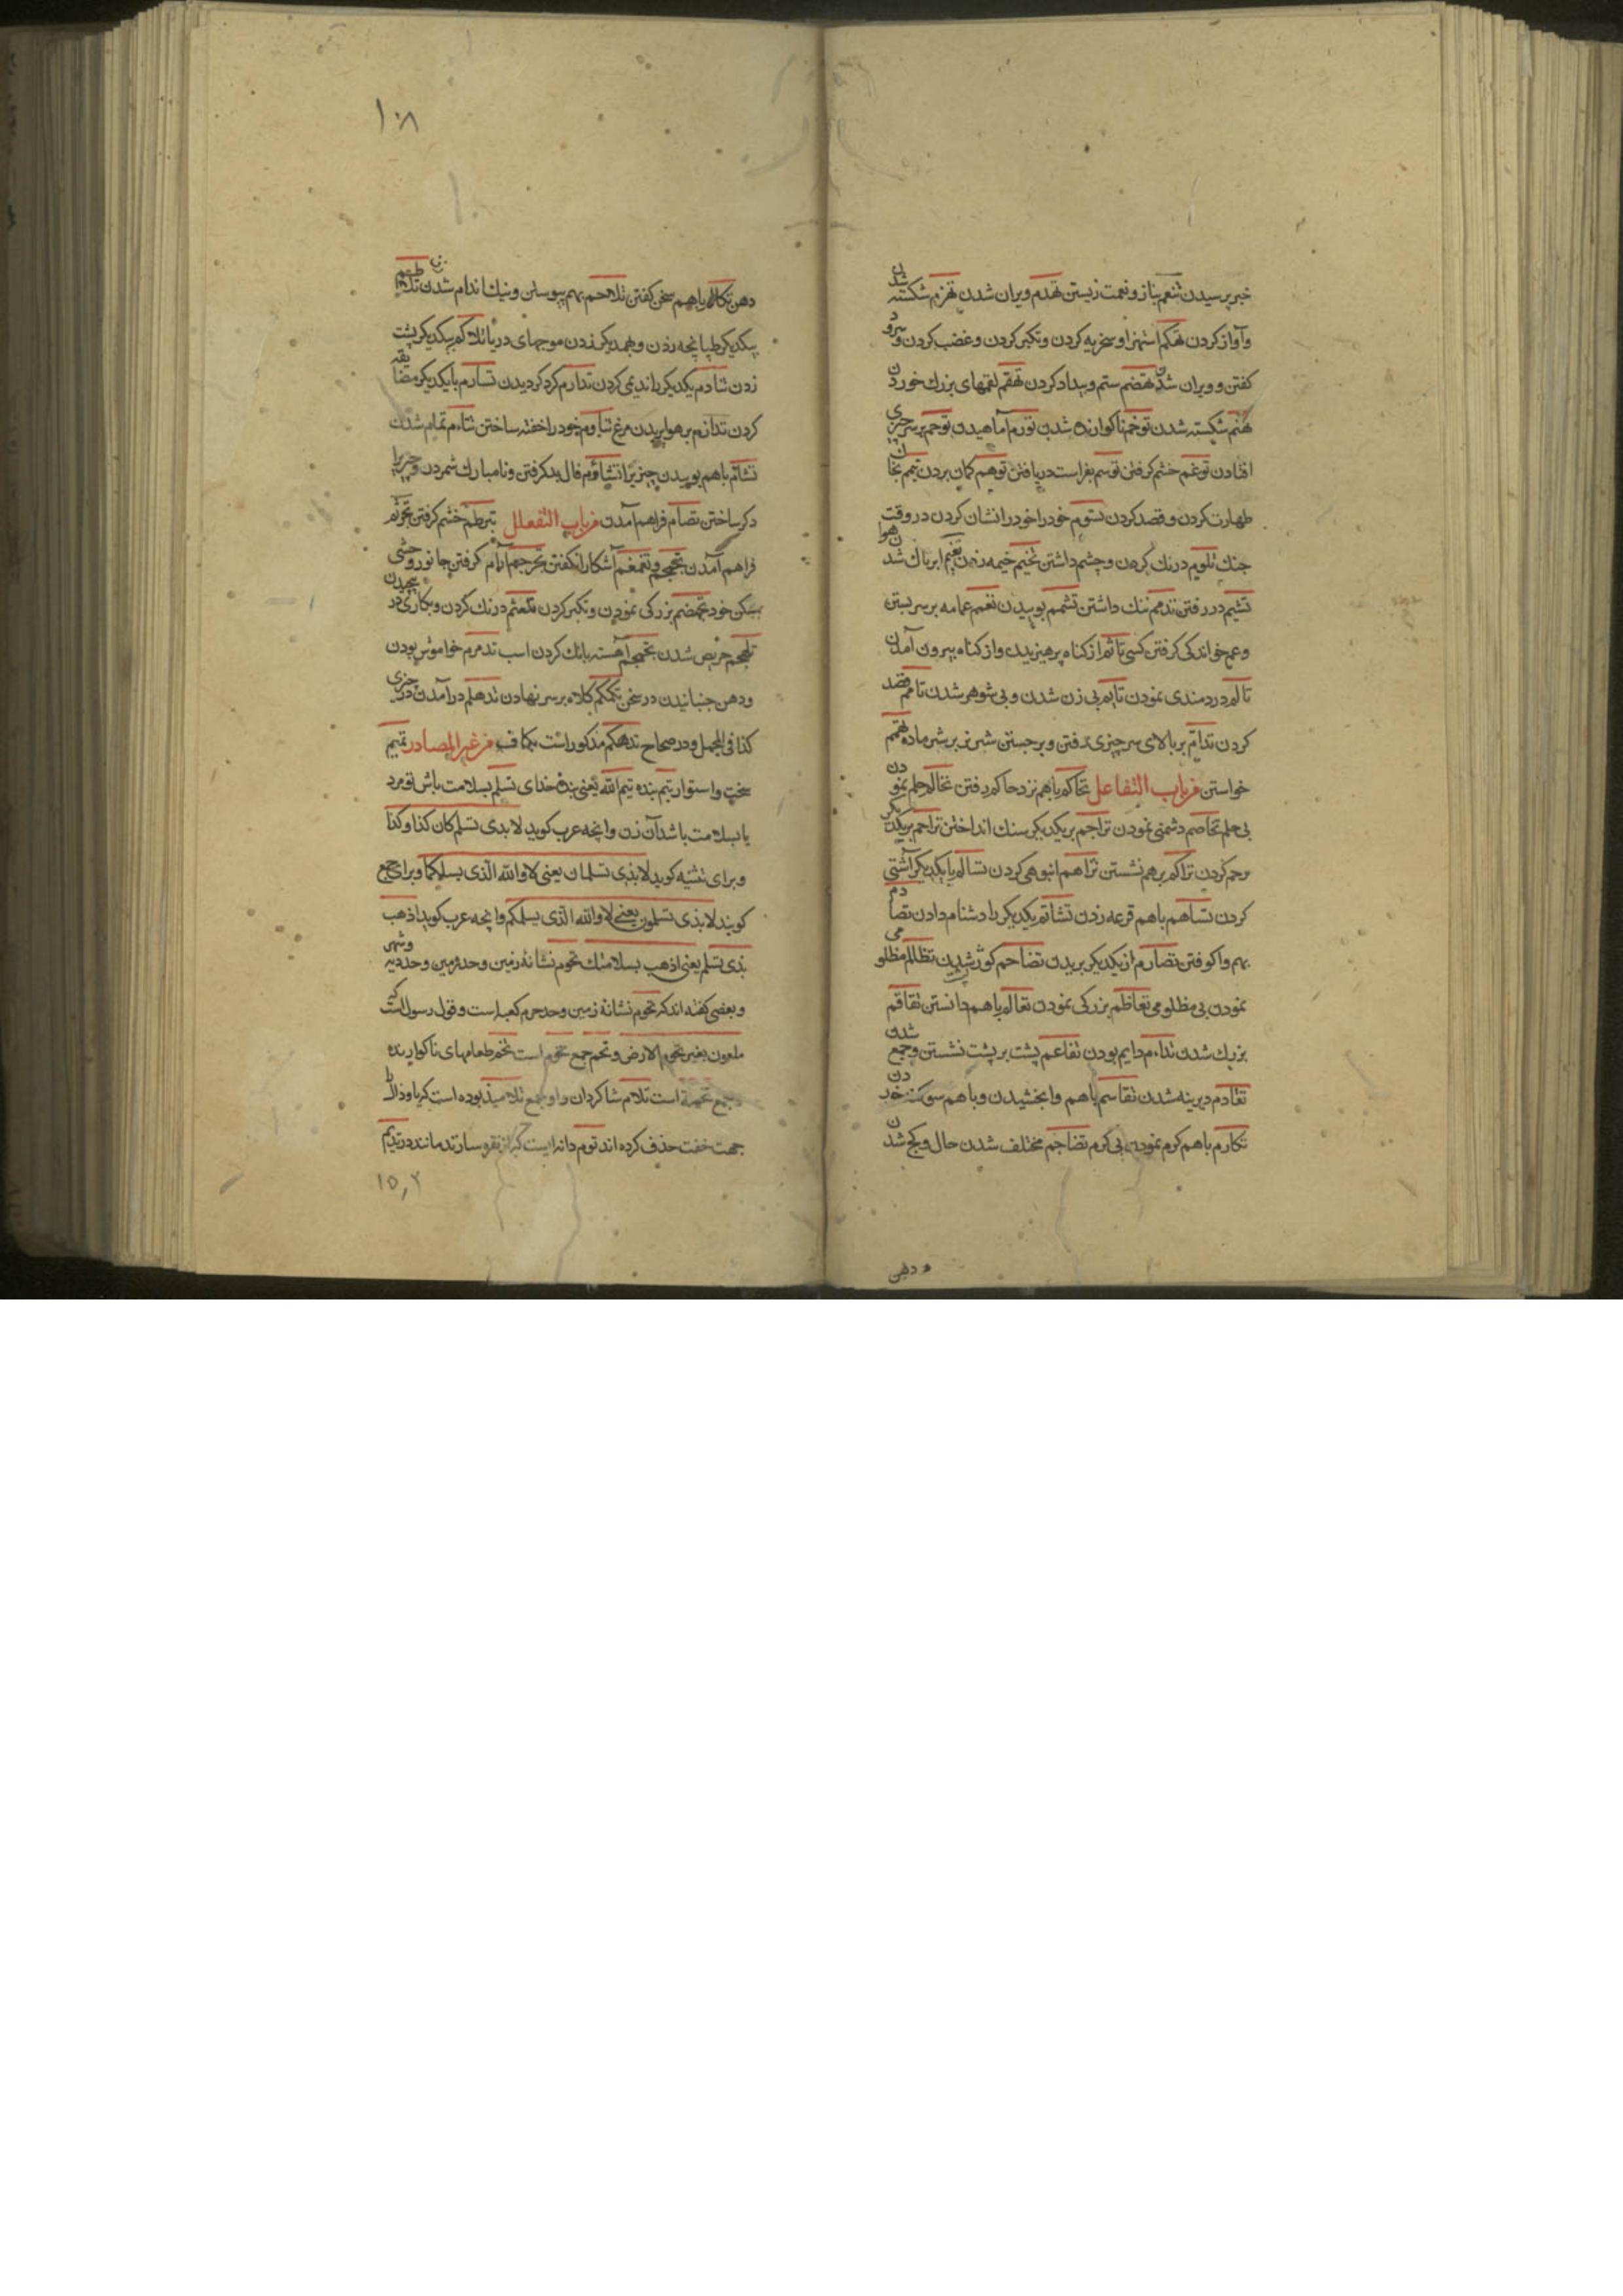 خبر پرسیدن تنعم بناز و نعمت زیستن تهدم ویران شدن تهزم شکسته شدن
و آواز کردن تهکم استهزا و سخریه کردن و تکبر کردن و غضب کردن و سرود
کفتن و ویران شدن تهضم ستم و بیداد کردن تهقم لقمهای بزرك خوردن
تهثم شکسته شدن توخم ناکوارنده شدن تورم آماهیدن توحم بر سر چیزی
افتادن توغم خشم کرفتن توسم بفراست دریافتن توهم کمان بردن تیمم بخاك
طهارت کردن و قصد کردن تسوم خود را خود را نشان کردن در وقت
جنك تلوم درنك کردن و چشم داشتن تخیم خیمه زدن تغیم ابرناك شدن هوا
تشیم در رفتن تذمم ننك داشتن تشمم بوییدن تعمم عمامه بر سر بستن
و عم خواندکی کرفتن کسی تاثم از کناه پرهیزیدن و از کناه بیرون آمدن
تالم دردمندی نمودن تایم بی زن شدن و بی شوهر شدن تامم قصد
کردن تدامّ بر بالای سر چیزی رفتن و برجستن شیر نر بر شیر ماده تهتم
خواستن من باب التفاعل تحاکم باهم نزد حاکم رفتن تحالم حلم نمودن
بی حلم تخاصم دشمنی نمودن تراجم بر یکدیکر سنك انداختن تراحم بر یکدیکر
رحم کردن تراکم بر هم نشستن تزاحم انبوهی کردن تسالم با یکدیکر آشتی
کردن تساهم باهم قرعه زدن تشاتم یکدیکر را دشنام دادن تصادم
بهم واکوفتن تصارم از یکدیکر بریدن تضاحم کوژ شدن تظالم مظلومی
نمودن بی مظلومی تعاظم بزرکی نمودن تعالم باهم دانستن تفاقم
بزرك شدن تداءم دایم بودن تفاعم پشت بر پشت نشستن و جمع شدن
تقادم دیرینه شدن تقاسم باهم وا بخشیدن و باهم سوکند خوردن
تکارم باهم کرم نمودن بی کرم تضاجم مختلف شدن حال و کج شدن
دهن
۱۰۸
دهن تکالم باهم سخن کفتن تلاحم بهم پیوستن و نیك اندام شدن تلاطم
یکدیکر طپانچه زدن و همدیکر زدن موجهای دریا تلاکم یکدیکر پشت
زدن تنادم یکدیکر را ندیمی کردن تدارم کرد کردیدن تسارم با یکدیکر مضایقه
کردن تداوم بر هوا پریدن مرغ تناوم خود را خفته ساختن تتاءم تمام شدن
تشامّ باهم بوییدن چیزی را تشاؤم فال بد کرفتن و نامبارك شمردن و چیزیرا
دکر ساختن تصامّ فراهم آمدن من باب التفعلل تبرطم خشم کرفتن تجرثم
فراهم آمدن تجمجم و تغمغم آشکارا نکفتن تجرجم آرام کرفتن جانور وحشی
بمسکن خود تهضم بزرکی نمودن و تکبر کردن تلعثم درنك کردن و بکاری در پیچیدن
تلهجم حریص شدن تحمحم آهسته بانك کردن اسب تدمرم خواموش بودن
و دهن جنبانیدن در سخن تکمکم کلاه بر سر نهادن تدهلم در آمدن در چیزی
کذا فی المجمل و در صحاح تدهکم مذکور است بمکا فب من غیر المصادر تمیم
سخت و استوار تیم بنده تیم الله یعنی بندهٔ خدای تسلم بسلامت باش تو مرد
یا بسلامت باشد آن زن و انچه عرب کوید لا بذی تسلم کان کذا و کذا
و برای تثنیه کوید لا بذی تسلمان یعنی لا والله الذی یسلمکما و برای جمع
کویند لا بذی تسلمون یعنی لا والله الذی یسلمکم و انچه عرب کوید اذهب
بذی تسلم یعنی اذهب بسلامتك تخوم نشانهٔ زمین و حد زمین و حد دیه و شهر
و بعضی کفته اند که تخوم نشانهٔ زمین و حد حرم کعبه است و قول رسول است که
ملعون بغیر تخوم الارض و تخم جمع تخوم است تخم طعامهای ناکوارنده
و جمع تخمة است تلام شاکردان و او جمع تلامیذ بوده است که یا و ذالرا
جهت خفت حذف کرده اند توم دانه ایست که از نقره سازند مانند در تدیم